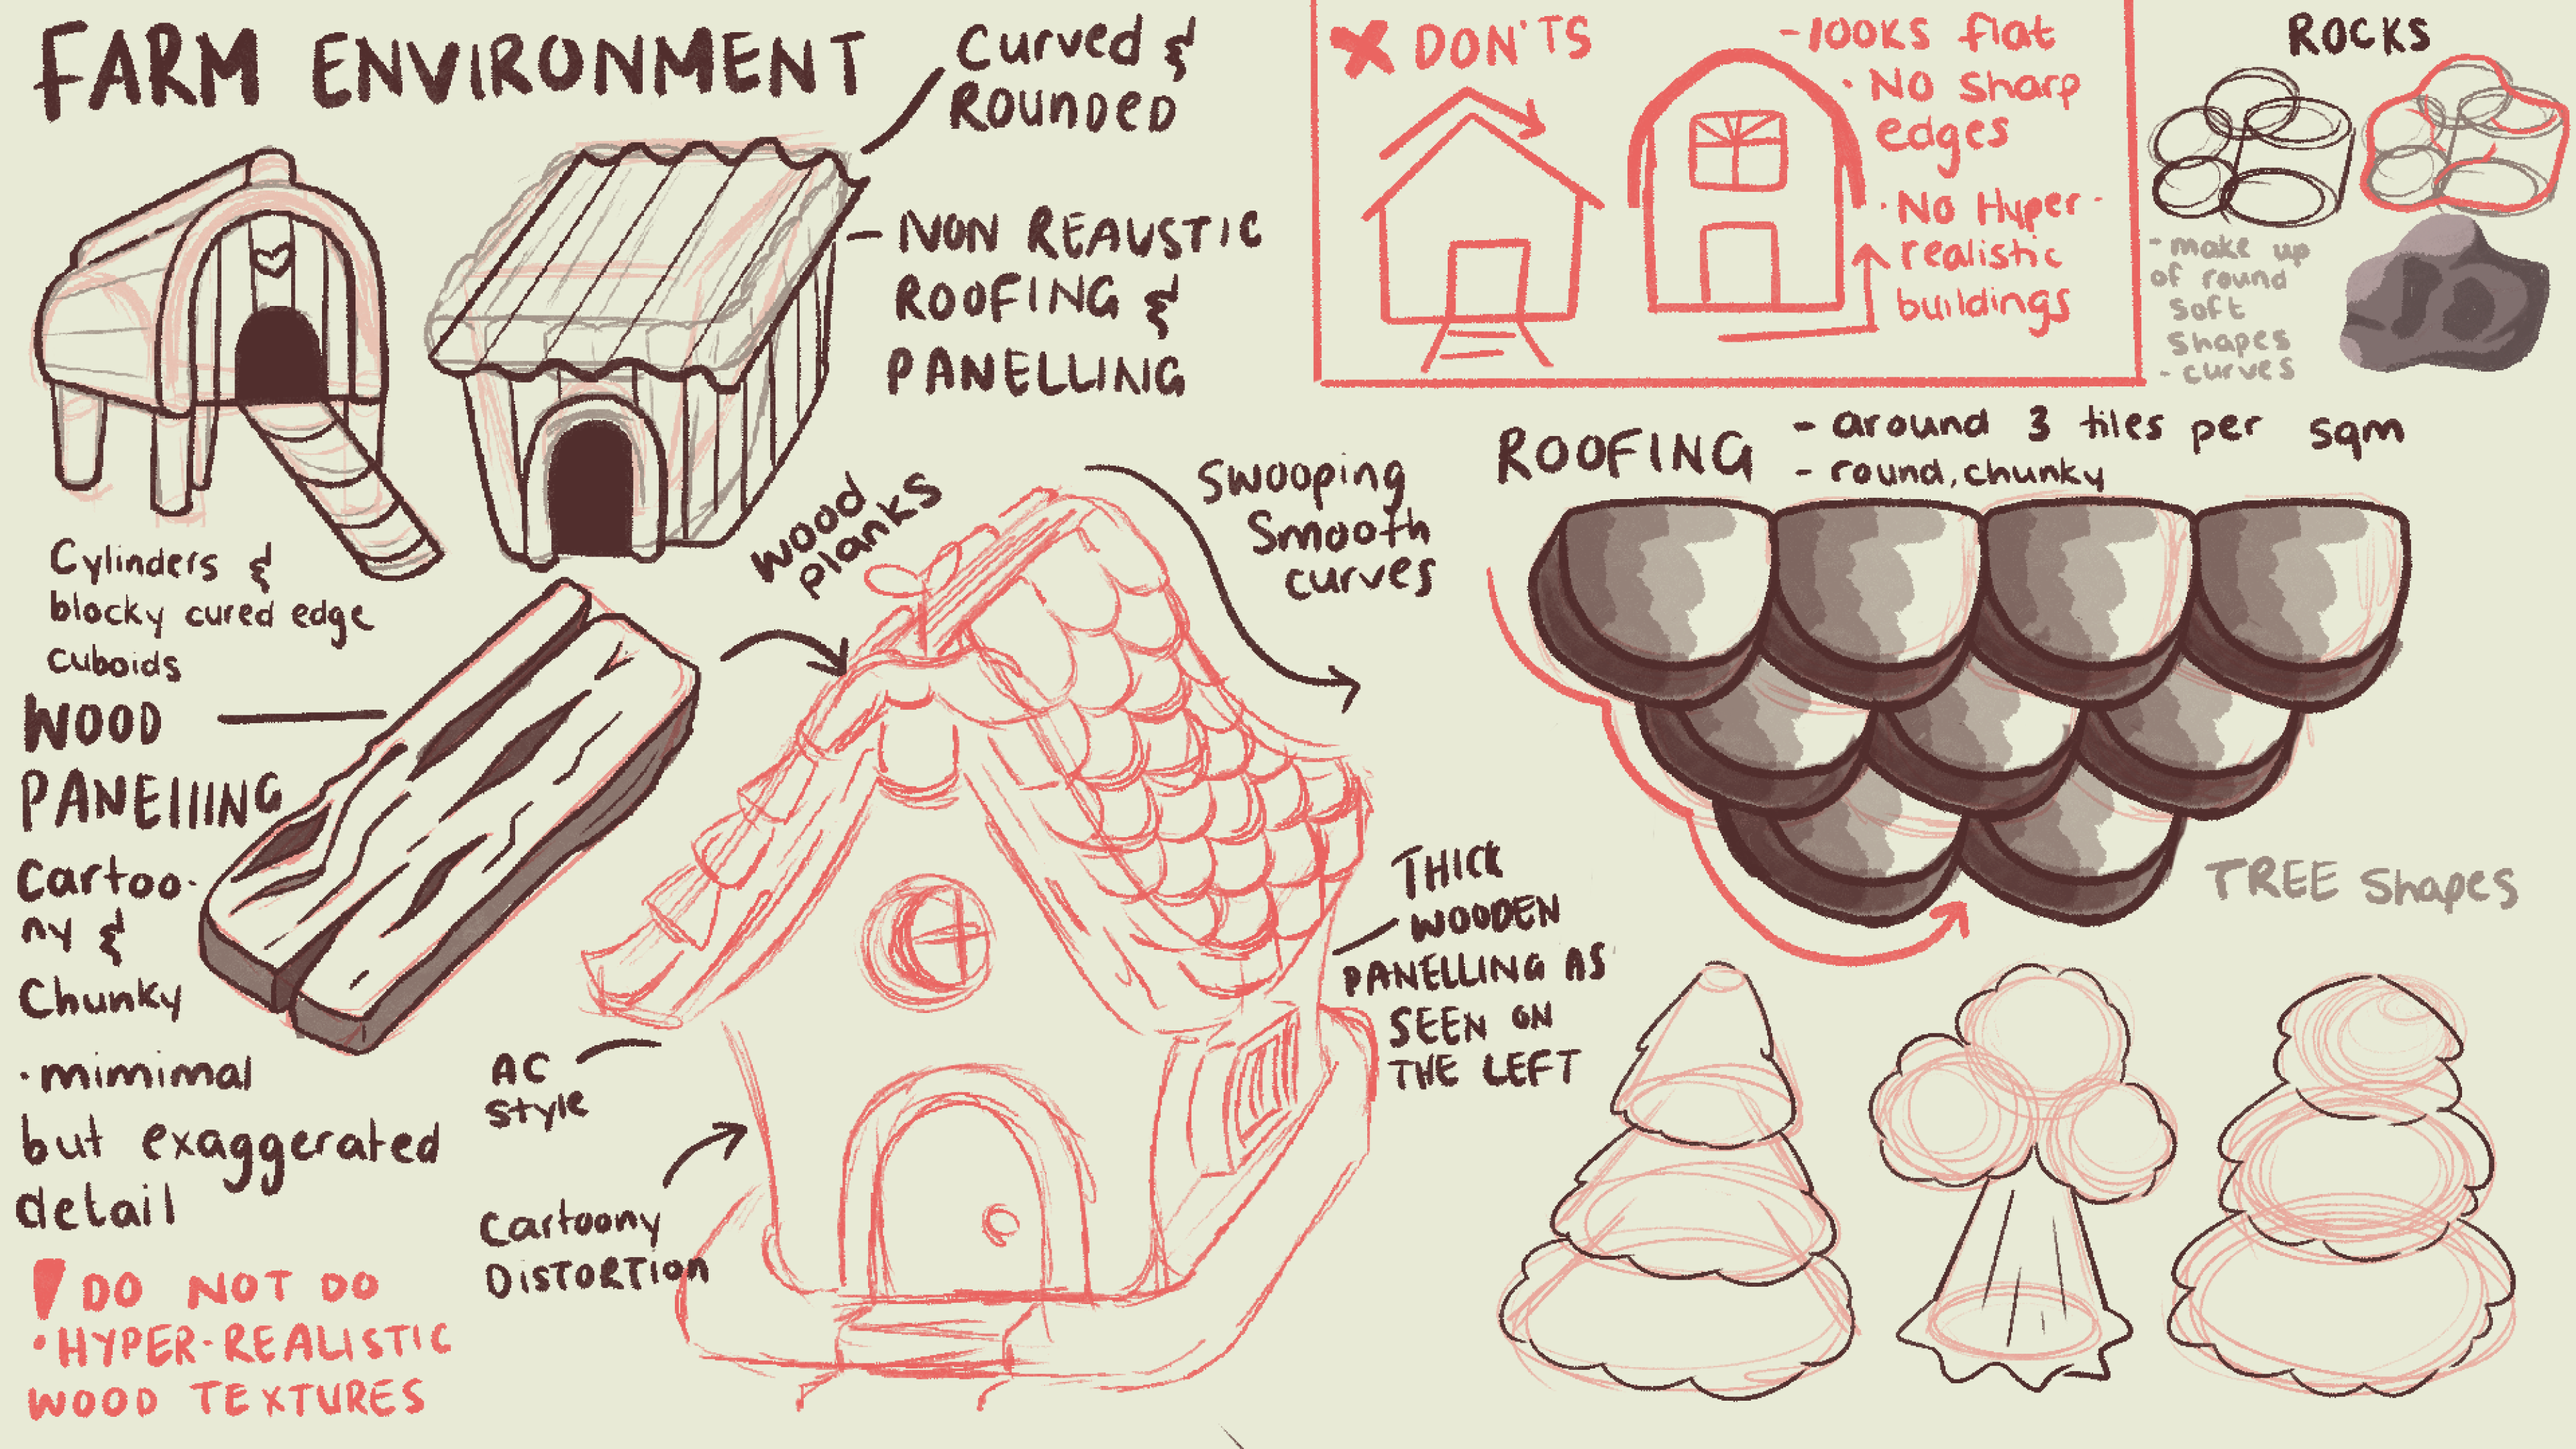 FARM ENVIRONMENT
Curved &
Rounded
- NON REALISTIC
ROOFING &
PANELLING
Cylinders &
blocky cured edge
cuboids
WOOD
PANElllNG
Cartoo-
ny &
Chunky
·mimimal
but exaggerated
detail
! DO NOT DO
·HYPER-REALISTIC
WOOD TEXTURES
wood
planks
Swooping
Smooth
curves
AC
style
Cartoony
DISTORTION
THICK
WOODEN
PANELLING AS
SEEN ON
THE LEFT
X DON'TS
-looks flat
·No sharp
edges
·No Hyper-
realistic
buildings
ROCKS
-make up
of round
soft
shapes
-curves
ROOFING
- around 3 tiles per sqm
- round, chunky
TREE shapes